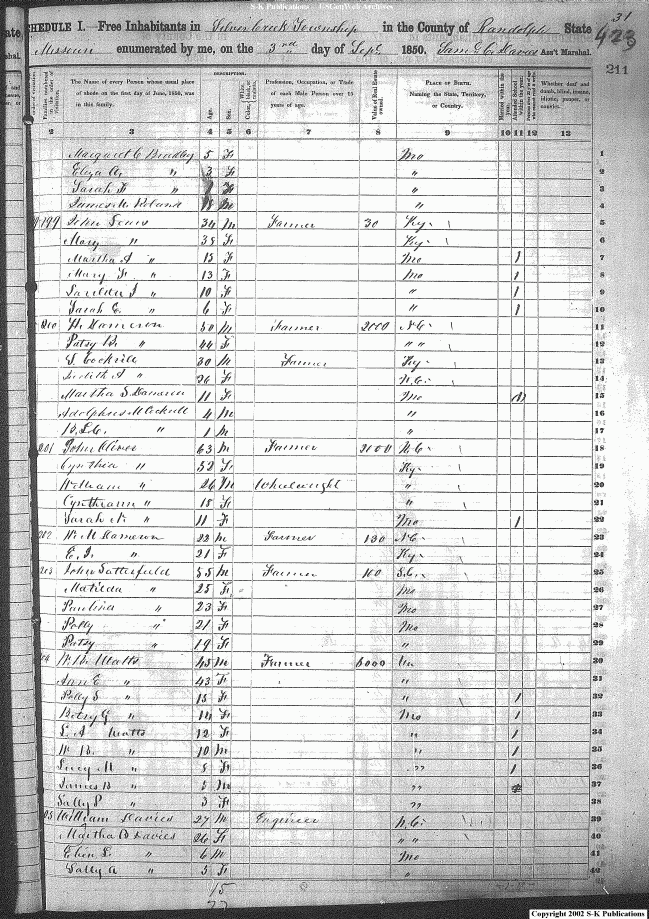 - S-K Publications - USGenWeb Archives
SCHEDULE I.—Free Inhabitants in Silver Creek Township in the County of Randolph State 31
423
Missouri enumerated by me, on the 3rd day of Sept 1850. Ass't Marshal.
211
DESCRIPTION.
The Name of every Person whose usual place of abode on the first day of June, 1850, was in this family.
Age
Sex
Profession, Occupation, or Trade of each Male Person over 15 years of age.
Value of Real Estate owned.
PLACE OF BIRTH. Naming the State, Territory, or Country.
Married within the year.
Attended School within the year.
Whether deaf and dumb, blind, insane, idiotic, pauper, or convict.
2 3 4 5 6 7 8 9 10 11 12 13
Margaret C Bradley 5 F Mo 1
Eliza A " 3 F " 2
Sarah F " F " 3
James M Roland M " 4
199 John 34 M Farmer 30 Ky 5
Mary " 38 F Ky 6
Martha A " 15 F Mo 1 7
Mary F " 13 F Mo 1 8
" 10 F " 1 9
Sarah E " 6 F " 1 10
200 Dameron 50 M Farmer 2000 N.C. 11
Patsy B. " 44 F " " 12
Cockrill 30 M Farmer Ky 13
Judith A " 26 F N.C. 14
Martha S Dameron 11 F Mo 15
Adolphus M Cockrill 4 M " 16
" 1 M " 17
201 John Oliver 63 M Farmer N.C. 18
Cynthia " 52 F Ky 19
William " 26 M Wheelwright " 20
Cynthiann " 18 F " 21
Sarah " 11 F Mo 1 22
202 W. M Dameron 22 M Farmer 130 N.C. 23
E. J. " 21 F Ky 24
203 John Satterfield 55 M Farmer 100 S.C. 25
Matilda " 25 F Mo 26
Paulina " 23 F Mo 27
Polly " 21 F Mo 28
Patsy " 19 F " 29
Watts 45 M Farmer 6000 Va 30
Ann E " 43 F " 31
Polly S " 15 F " 1 32
Betsy G " 14 F Mo 1 33
L. A Watts 12 F " 1 34
W B. " 10 M " 1 35
Lucy M " 8 F " 1 36
James B " 5 M " 37
Sally P " 3 F " 38
William Davies 27 M Engineer N.C. 39
Martha B Davies 26 F " " 40
Eben L. " 6 M Mo 41
Sally A " 3 F " 42
15
Copyright 2002 S-K Publications